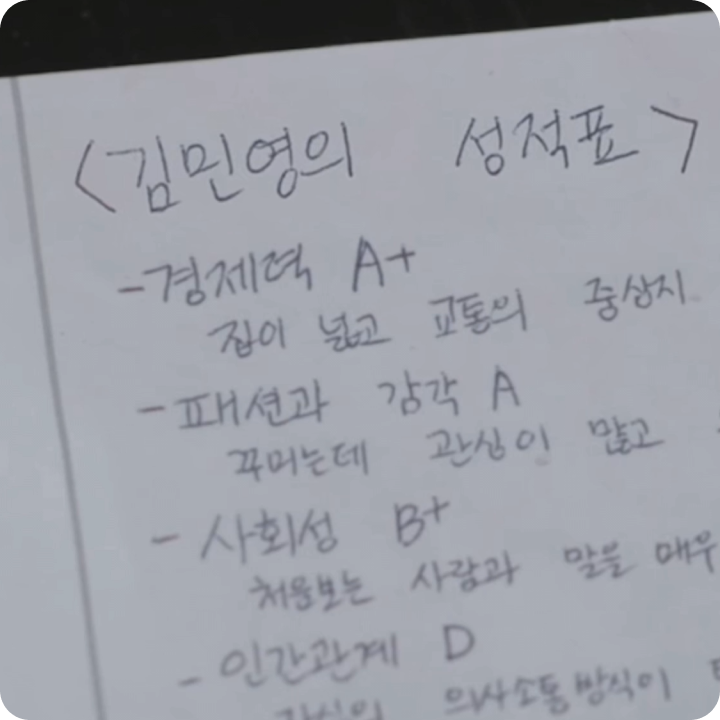 <김민영의 성적표>
-경제력 A+
집이 넓고 교통의 중상지
- 패션과 감각 A
꾸미는데 관심이 많고
- 사회성 B+
처음보는 사람과 말을 매우
- 인간관계 D
의사소통방식이